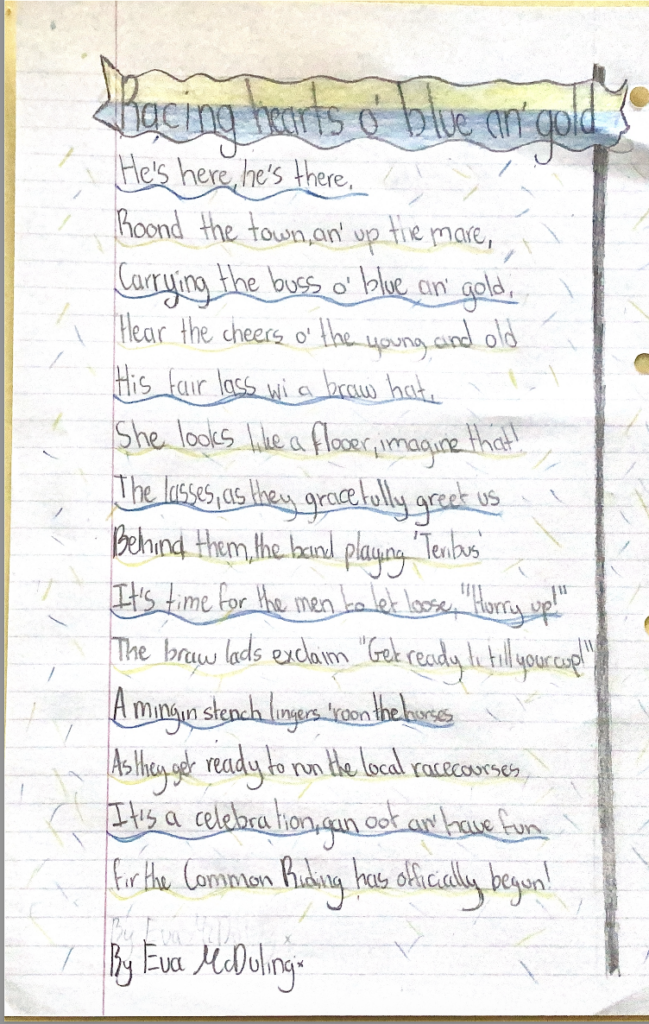 Racing hearts o' blue an' gold
He's here, he's there,
Roond the town, an' up the mare,
Carrying the buss o' blue an' gold,
Hear the cheers o' the young and old
His fair lass wi a braw hat,
She looks like a flooer, imagine that!
The lasses, as they gracefully greet us
Behind them, the band playing 'Teribus'
It's time for the men to let loose, "Hurry up!"
The braw lads exclaim "Get ready ti fill your cup!"
A mingin stench lingers 'roon the horses
As they get ready to run the local racecourses
It's a celebration, gan oot an' have fun
fir the Common Riding has officially begun!
By Eva McDuling
By Eva McDuling